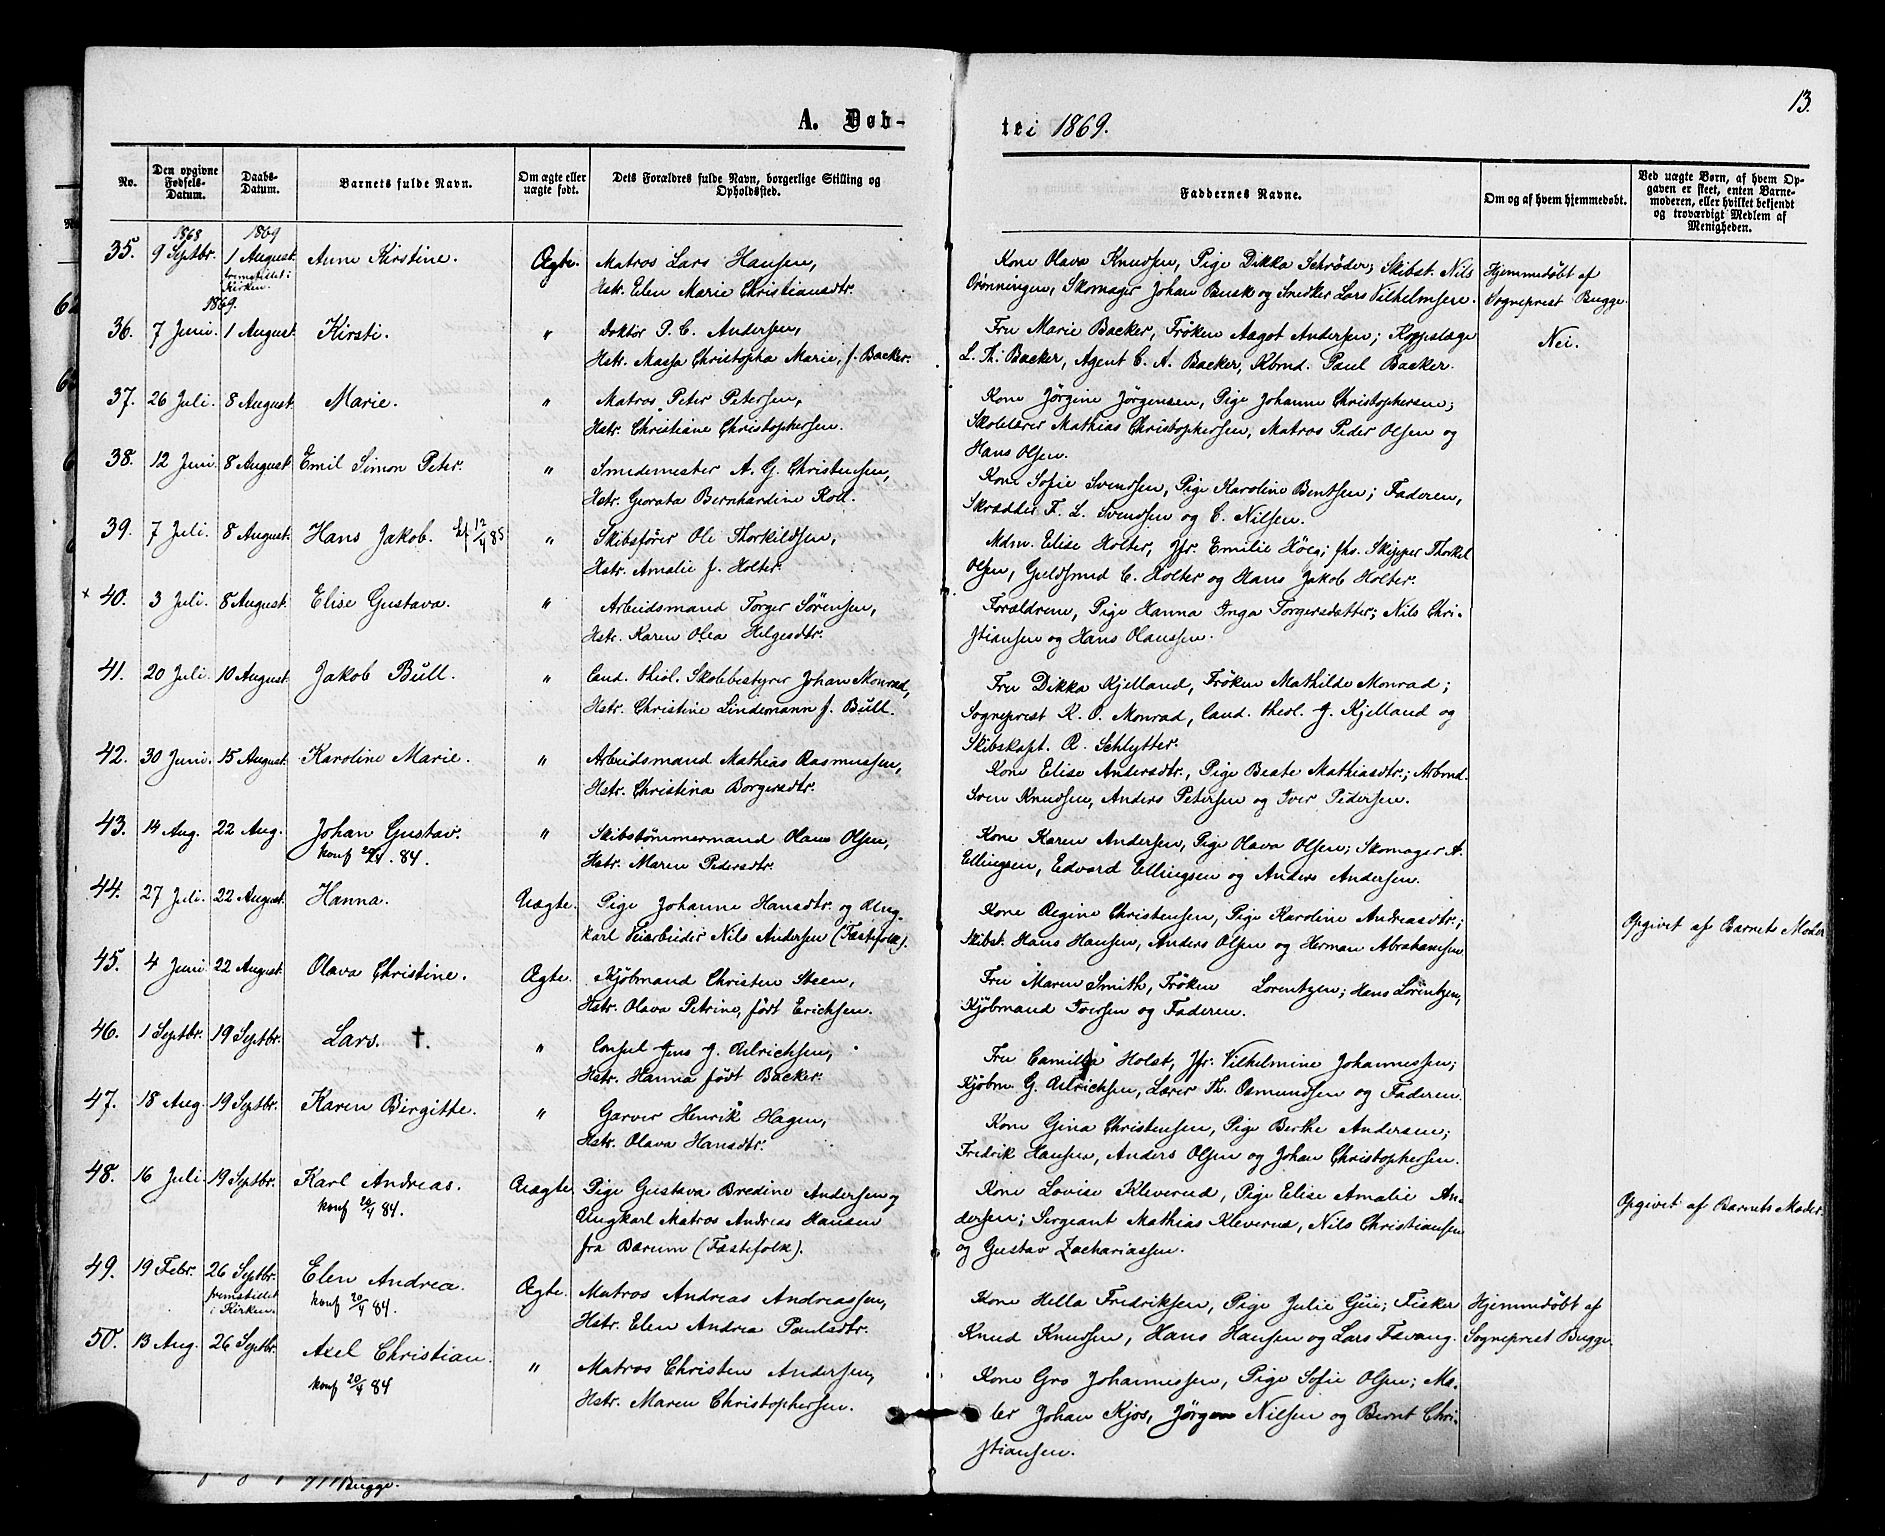 13.
A. Døb-
te i 1869.
No.
Den opgivne Fødsels-Datum.
Daabs-Datum.
Barnets fulde Navn.
Om ægte eller uægte født.
Dets Forældres fulde Navn, borgerlige Stilling og Opholdssted.
Faddernes Navne.
Om og af hvem hjemmedøbt.
Ved uægte Børn, af hvem Opgaven er skeet, enten Barnemoderen, eller hvilket bekjendt og troværdigt Medlem af Menigheden.
1868 1869
35. 9 Septbr. 1 August fremstillet i Kirken. Anne Kirstine. Ægte. Matros Lars Hansen,
Hstr. Elen Marie Christiansdtr.
Kone Olava Knudsen, Pige Dikka Schrøder; Skibst. Nils
Orønningen, Skomager Johan Busk og Snedker Lars Vilhelmsen.
Hjemmedøbt af
Sogneprest Bugge.
1869.
36. 7 Juni. 1 August. Kirsti. " Doktor P. C. Andersen,
Hstr. Massa Christopha Marie, f. Backer.
Fru Marie Backer, Frøken Aagot Andersen; Koppslage
L. Th. Backer, Agent C. A. Backer, Kbmd. Paul Backer.
Nei.
37. 26 Juli. 8 August. Marie. " Matros Peter Petersen,
Hstr. Christiane Christophersen.
Kone Jørgine Jørgensen, Pige Johanne Christophersen;
Skolelærer Mathias Christophersen, Matros Peder Olsen og
Hans Olsen.
38. 12 Juni. 8 August. Emil Simon Peter. " Smedemester A. G. Christensen,
Hstr. Georata Bernhardine Rod.
Kone Sofie Svendsen, Pige Karoline Bentsen; Faderen,
Skrædder F. L. Svendsen og C. Nilsen.
39. 7 Juli. 8 August. Hans Jakob. kf 12/4 85 " Skibsfører Ole Thorkildsen,
Hstr. Amalie f. Holter.
Mdm. Elise Holter, Jfr. Emilie Höeg; fhv. Skipper Thorkel
Olsen, Guldsmed C. Holter og Hans Jakob Holter.
x 40. 3 Juli. 8 August. Elise Gustava. " Arbeidsmand Torger Sørensen,
Hstr. Karen Olea Helgesdtr.
Forældrene, Pige Hanna Inga Torgersdatter; Nils Chri-
stiansen og Hans Olaussen.
41. 20 Juli. 10 August. Jakob Bull. " Cand. theol. Skolebestyrer Johan Monrad,
Hstr. Christine Lindemann f. Bull.
Fru Dikka Kjelland, Frøken Mathilde Monrad;
Sogneprest K. O. Monrad, Cand. theol. J. Kjelland og
Skibskapt. R. Schlytter.
42. 30 Juni. 15 August. Karoline Marie. " Arbeidsmand Mathias Rasmussen,
Hstr. Christina Borgersdtr.
Kone Elise Andersdtr., Pige Beate Mathiasdtr.; Arbmd.
Sven Knudsen, Anders Petersen og Iver Pedersen.
43. 14 Aug. 22 Aug. Johan Gustav. " Skibstømmermand Olaus Olsen,
konf 20/4. 84. Hstr. Maren Pedersdtr.
Kone Karen Andersen, Pige Olava Olsen; Skomager A.
Ellingsen, Edvard Ellingsen og Anders Andersen.
44. 27 Juli. 22 August. Hanna. Uægte. Pige Johanne Hansdtr. og Ung-
karl Teiarbeider Nils Andersen (Fæstefolk).
Kone Regine Christensen, Pige Karoline Andreasdtr.;
Skibst. Hans Hansen, Anders Olsen og Herman Abrahamsen
Opgivet af Barnets Moder
45. 4 Juni 22 August. Olava Christine. Ægte. Kjøbmand Christen Steen,
Hstr. Olava Petrine, født Erichsen.
Fru Maren Smith, Frøken Lorentzen; Hans Lorentzen,
Kjøbmand Iversen og Faderen.
46. 1 Septbr. 19 Septbr. Lars. † " Consul Jens J. Ulrichsen,
Hstr. Hanna født Backer.
Fru Camilla Holst, Jfr. Vilhelmine Johannessen;
Kjøbm. G. Ulrichsen, Lærer Th. Osmundsen og Faderen.
47. 18 Aug. 19 Septbr. Karen Birgitte. " Garver Henrik Hagen,
Hstr. Olava Hansdtr.
Kone Gina Christensen, Pige Berthe Andersen;
Fredrik Hansen, Anders Olsen og Johan Christophersen.
48. 16 Juli 19 Septbr. Karl Andreas. Uægte Pige Gustava Bredine Andersen og
konf 20/4 84. Ungkarl Matros Andreas Hansen
fra Bærum (Fæstefolk).
Kone Lovise Kleverud, Pige Elise Amalie An-
dersen; Sergeant Mathias Kleverud, Nils Christiansen
og Gustav Zachariassen.
Opgivet af Barnets Moder.
49. 19 Febr. 26 Septbr. fremstillet i Kirken. Elen Andrea. Ægte. Matros Andreas Andreassen,
konf 20/4 84. Hstr. Elen Andrea Paulsdtr.
Kone Hella Fredriksen, Pige Julie Gui; Fisker
Knud Knudsen, Hans Hansen og Lars Favang.
Hjemmedøbt af
Sogneprest Bugge.
50. 13 Aug. 26 Septbr. Axel Christian. " Matros Christen Andersen,
konf 20/4 84 Hstr. Maren Christophersen.
Kone Gro Johannessen, Pige Sofie Olsen; Ma-
ler Johan Kjos, Jørgen Nilsen og Bernt Chri-
stiansen.
Bugge.